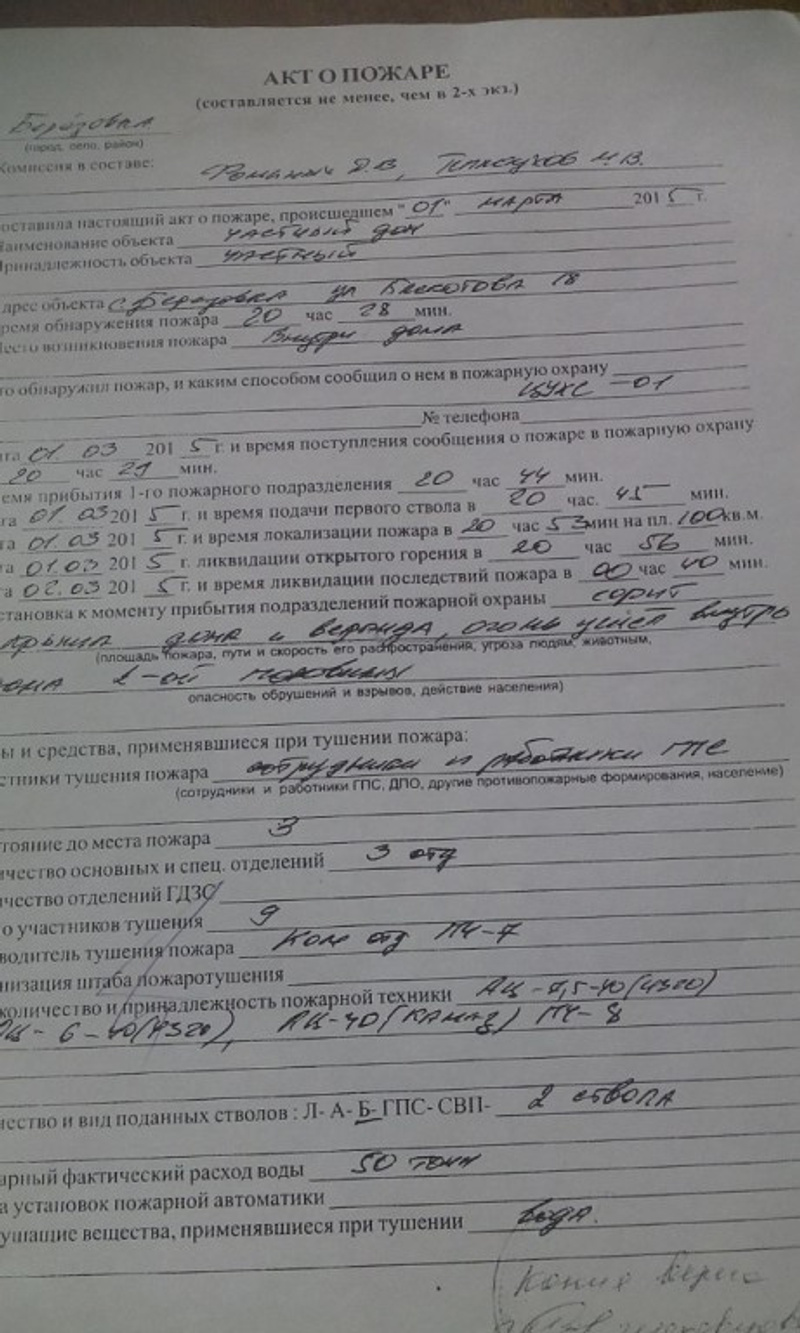 АКТ О ПОЖАРЕ
(составляется не менее, чем в 2-х экз.)
Берёзовка
(город, село, район)
Комиссия в составе:
Д.В, М.В.
оставила настоящий акт о пожаре, происшедшем "01" марта 2015 г.
Наименование объекта частный дом
Принадлежность объекта частный
дрес объекта с. Березовка ул 18
ремя обнаружения пожара 20 час 28 мин.
есто возникновения пожара Внутри дома
то обнаружил пожар, и каким способом сообщил о нем в пожарную охрану
ЦУКС -01
№ телефона
та 01. 03 2015 г. и время поступления сообщения о пожаре в пожарную охрану
20 час 29 мин.
емя прибытия 1-го пожарного подразделения 20 час 44 мин.
та 01. 03 2015 г. и время подачи первого ствола в 20 час. 45 мин.
та 01.03 2015 г. и время локализации пожара в 20 час 53 мин на пл. 100 кв.м.
та 01.03 2015 г. ликвидации открытого горения в 20 час 56 мин.
та 02.03 2015 г. и время ликвидации последствий пожара в 00 час 40 мин.
становка к моменту прибытия подразделений пожарной охраны горит
дома и веранда, огонь ушёл внутрь
(площадь пожара, пути и скорость его распространения, угроза людям, животным,
дома 2-ой половины
опасность обрушений и взрывов, действие населения)
ы и средства, применявшиеся при тушении пожара:
стники тушения пожара сотрудники и работники ГПС
(сотрудники и работники ГПС, ДПО, другие противопожарные формирования, население)
тояние до места пожара 3
ичество основных и спец. отделений 3 отд
ичество отделений ГДЗС
о участников тушения 9
водитель тушения пожара Ком отд ПЧ-7
низация штаба пожаротушения
количество и принадлежность пожарной техники АЦ -7,5-40(4320)
АЦ- 6-40(4320), АЦ-40(КАМАЗ) ПЧ-8
чество и вид поданных стволов : Л- А- Б- ГПС- СВП- 2 ствола
арный фактический расход воды 50 тонн
а установок пожарной автоматики
ушащие вещества, применявшиеся при тушении вода.
Копия верна